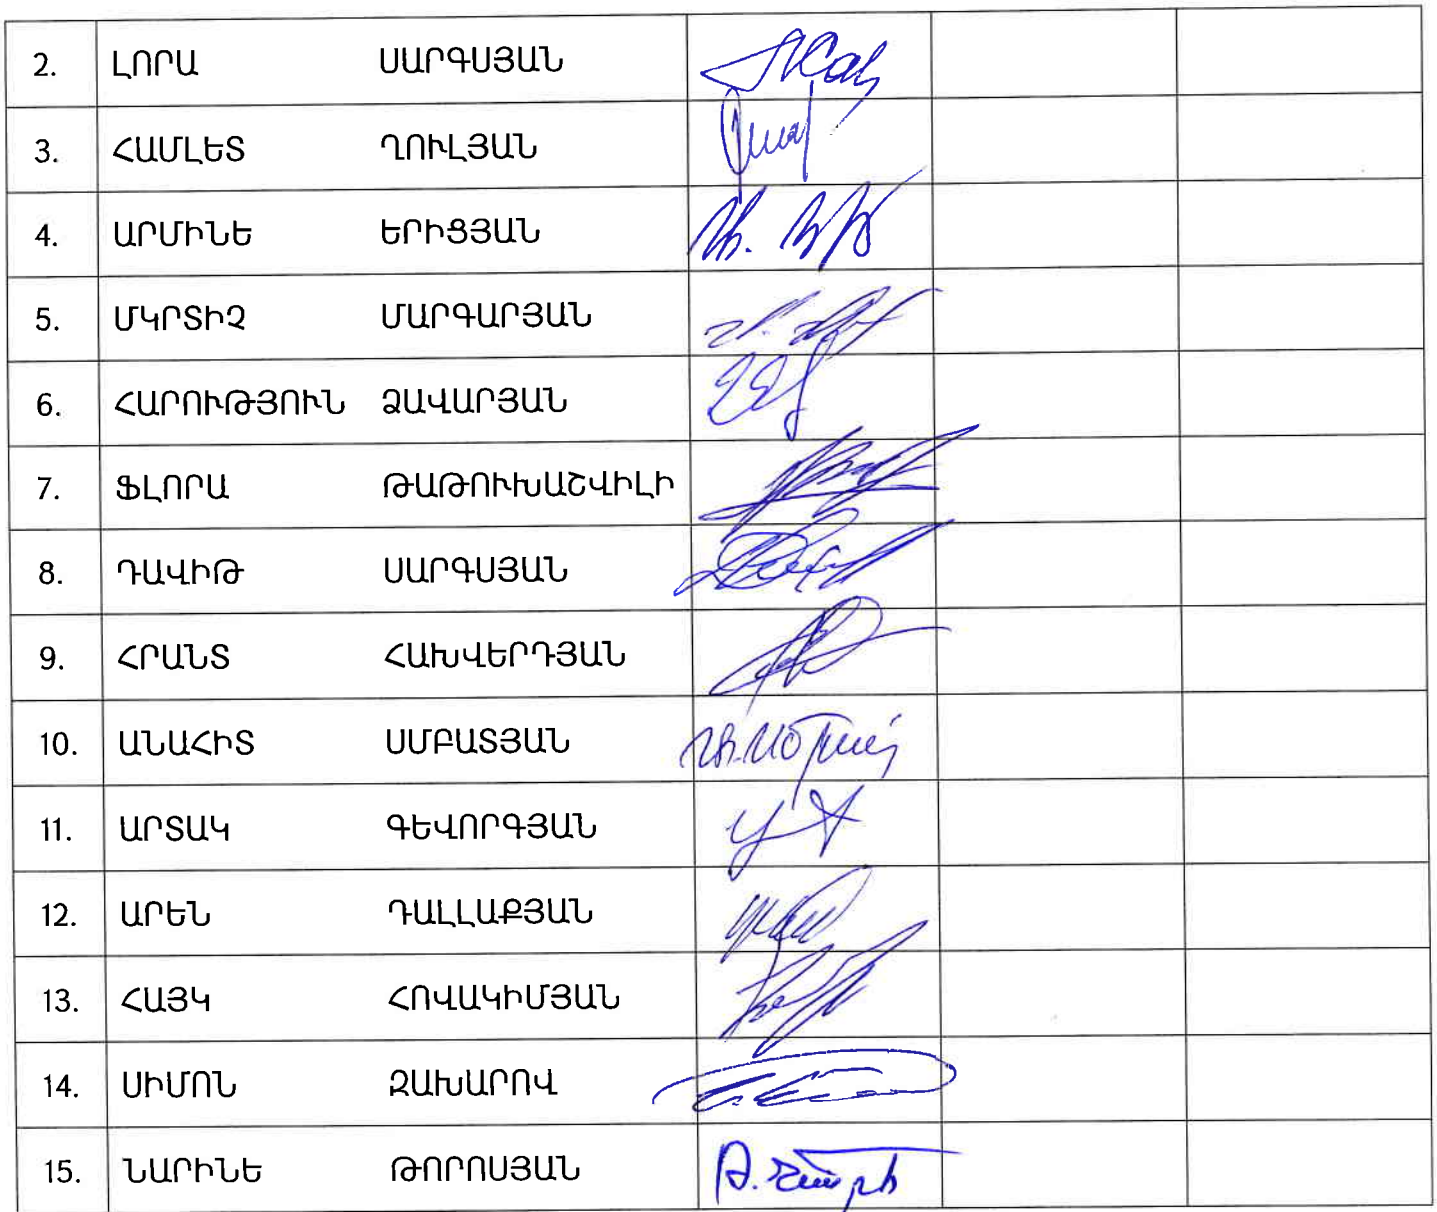 2. ԼՈՐԱ ՍԱՐԳՍՅԱՆ
3. ՀԱՄԼԵՏ ՂՈՒԼՅԱՆ
4. ԱՐՄԻՆԵ ԵՐԻՑՅԱՆ
5. ՄԿՐՏԻՉ ՄԱՐԳԱՐՅԱՆ
6. ՀԱՐՈՒԹՅՈՒՆ ՁԱՎԱՐՅԱՆ
7. ՖԼՈՐԱ ԹԱԹՈՒԽԱՇՎԻԼԻ
8. ԴԱՎԻԹ ՍԱՐԳՍՅԱՆ
9. ՀՐԱՆՏ ՀԱԽՎԵՐԴՅԱՆ
10. ԱՆԱՀԻՏ ՍՄԲԱՏՅԱՆ
11. ԱՐՏԱԿ ԳԵՎՈՐԳՅԱՆ
12. ԱՐԵՆ ԴԱԼԼԱՔՅԱՆ
13. ՀԱՅԿ ՀՈՎԱԿԻՄՅԱՆ
14. ՍԻՄՈՆ ԶԱԽԱՐՈՎ
15. ՆԱՐԻՆԵ ԹՈՐՈՍՅԱՆ